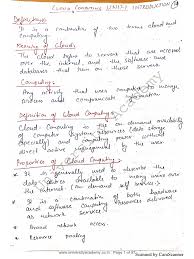 CLOUD COMPUTING (UNIT-1) INTRODUCTION
Definition:
It is a combination of two terms cloud and computing.
Meaning of Cloud:
The cloud refers to servers that are accessed
over the internet, and the software and
databases that run on these servers.
Computing:
Any activity that uses computers to manage,
process and communicate information.
Definition of Cloud Computing:
Cloud Computing is the on demand availability
of computer system resources (data storage
especially) and computing power without direct
active management by the user.
Properties of Cloud Computing:
It is generally used to describe the
data centers available to many users over the
internet. (on demand self service).
It is combination of both hardware
and software computing resources
as network services
Broad network access
Resource pooling
Page 1 of
Scanned by CamScanner